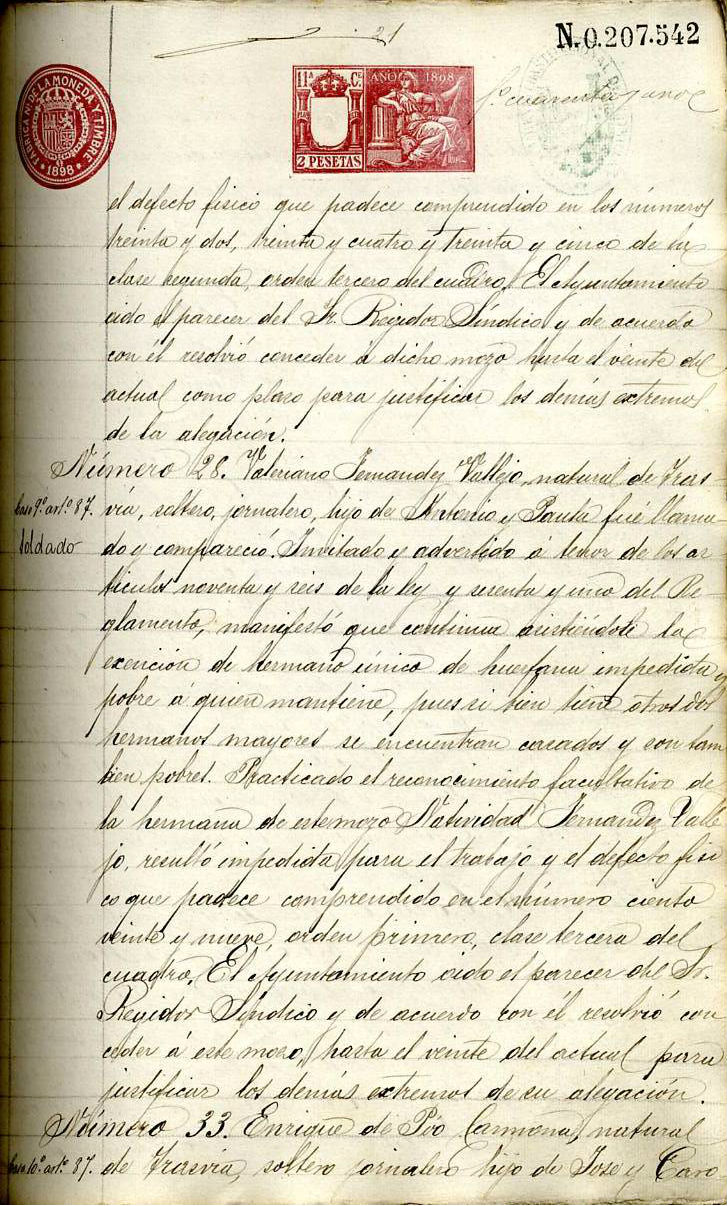 21
N.0.207.542
FABRICA N. DE LA MONEDA Y TIMBRE
* 1898 *
11ª Cª
AÑO 1898
2 PESETAS
el defecto fisico que padece comprendido en los números
treinta y dos, treinta y cuatro y treinta y cinco de la
clase segunda, orden tercero del cuadro. El Ayuntamiento
oido el parecer del Sr. Regidor Síndico y de acuerdo
con él resolvió conceder á dicho mozo hasta el veinte del
actual como plazo para justificar los demás extremos
de la alegación.
Número 28. Valeriano Fernandez Vallejo, natural de Tras-
Caso 9º artº 87. vía, soltero, jornalero, hijo de Antonio y Paula fué llama
Soldado do y compareció. Invitado y advertido á tenor de los ar
ticulos noventa y seis de la ley y sesenta y uno del Re-
glamento, manifestó que continua asistiéndole la
exención de hermano único de huerfana impedida y
pobre á quien mantiene, pues si bien tiene otros dos
hermanos mayores se encuentran casados y son tam
bien pobres. Practicado el reconocimiento facultativo de
la hermana de este mozo Natividad Fernandez Valle
jo, resultó impedida para el trabajo y el defecto fisi
co que padece comprendido en el número ciento
veinte y nueve, orden primero, clase tercera del
cuadro. El Ayuntamiento oido el parecer del Sr.
Regidor Síndico y de acuerdo con él resolvió con
ceder á este mozo, hasta el veinte del actual para
justificar los demás extremos de su alegación.
Número 33. Enrique de Pío Carmona, natural
Caso 10º artº 87. de Trasvía, soltero jornalero hijo de Jose y Caro